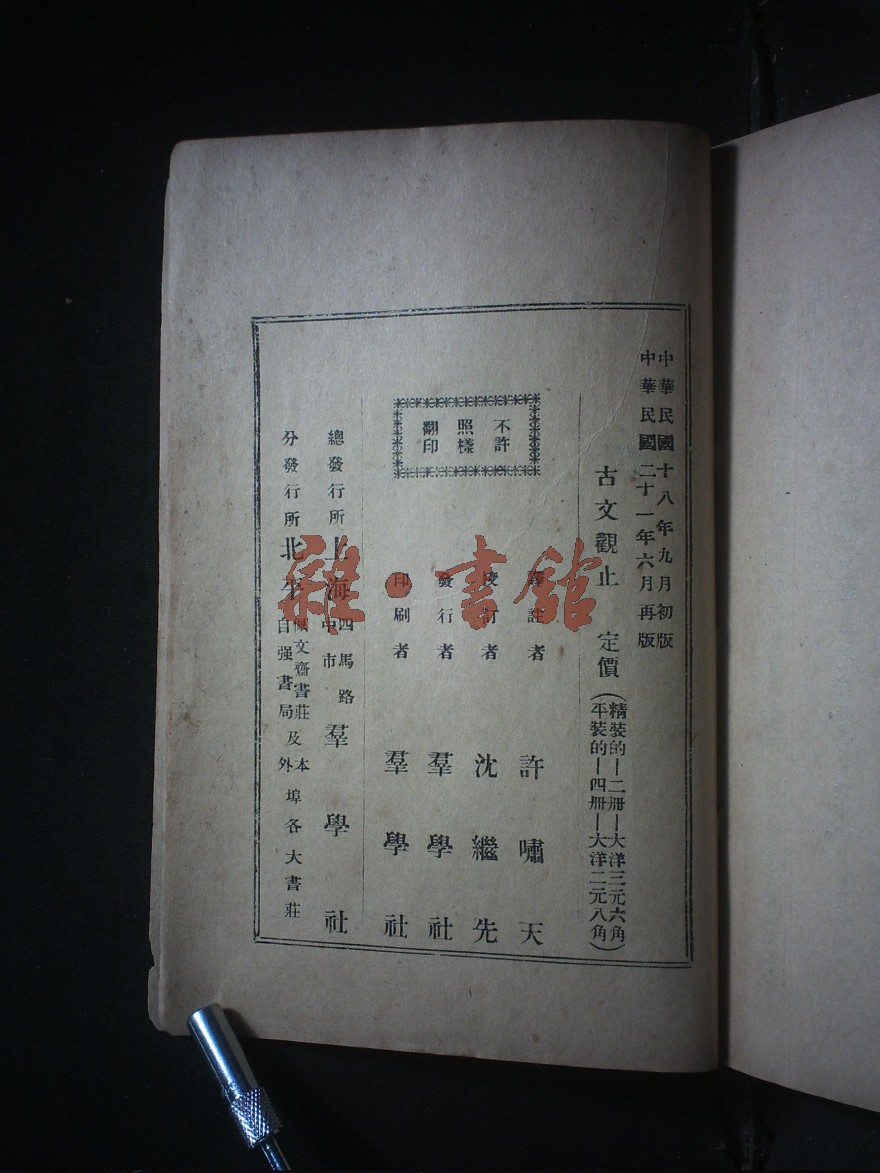 中華民國十八年九月初版
中華民國二十一年六月再版
古文觀止 定價
(精裝的—二册—大洋三元六角
平裝的—四册—大洋二元八角)
不許
照樣
翻印
譯註者 許嘯天
校訂者 沈繼先
發行者 羣學社
印刷者 羣學社
總發行所 上海四馬路中市 羣學社
分發行所 北平佩文齋書莊及本
自强書局 外埠各大書莊
雜·書館